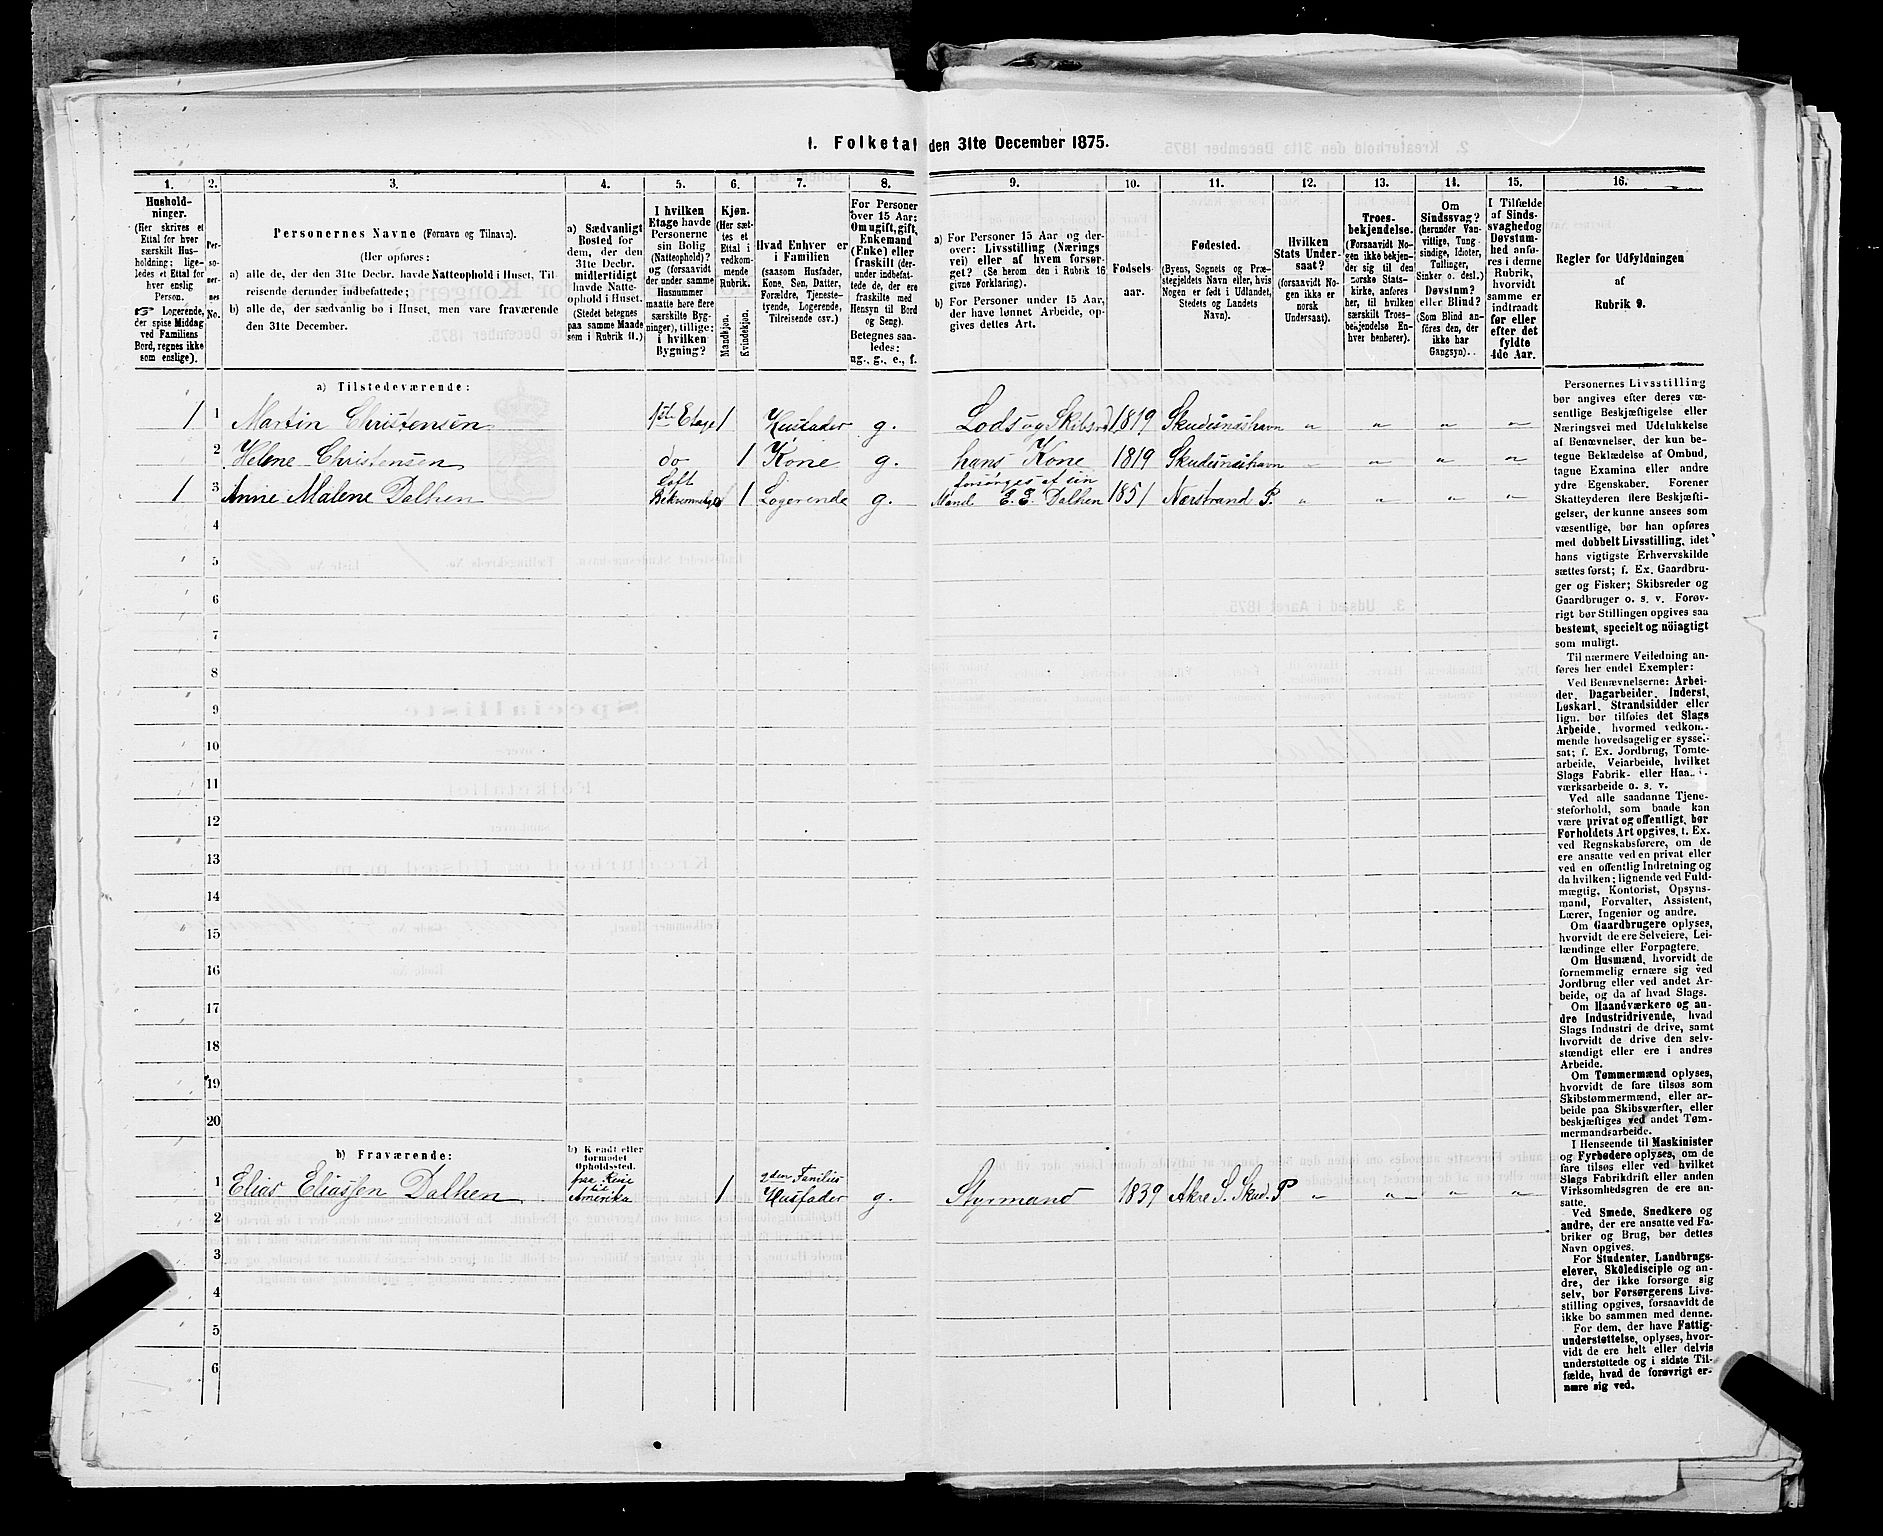 1. Folketal den 31te December 1875.
1. 2. 3. 4. 5. 6. 7. 8. 9. 10. 11. 12. 13. 14. 15. 16.
Hushold-
ninger.
(Her skrives et
Ettal for hver
særskilt Hus-
holdning; lige-
ledes et Ettal for
hver enslig
Person.
☞ Logerende,
der spise Middag
ved Familiens
Bord, regnes ikke
som enslige).
Per-
so-
ner-
nes
No.
Personernes Navne (Fornavn og Tilnavn).
(Her opføres:
a) alle de, der den 31te Decbr. havde Natteophold i Huset, Til-
reisende derunder indbefattede;
b) alle de, der sædvanlig bo i Huset, men vare fraværende
den 31te December.
a) Sædvanligt
Bosted for
dem, der den
31te Decbr.
midlertidigt
havde Natte-
ophold i Huset.
(Stedet betegnes
paa samme Maade
som i Rubrik 11.)
I hvilken
Etage havde
Personerne
sin Bolig
(Natteophold)?
og (forsaavidt
der under samme
Husnummer
maatte høre flere
særskilte Byg-
ninger), tillige:
i hvilken
Bygning?
Kjøn.
(Her sæt-
tes et
Ettal i
vedkom-
mende
Rubrik.
Mandkjøn.
Kvindekjøn.
Hvad Enhver er
i Familien
(saasom Husfader,
Kone, Søn, Datter,
Forældre, Tjeneste-
tyende, Logerende,
Tilreisende osv.)
For Personer
over 15 Aar:
Om ugift, gift,
Enkemand
(Enke) eller
fraskilt (der-
under indbefat-
tede de, der ere
fraskilte med
Hensyn til Bord
og Seng).
Betegnes saa-
ledes:
ug., g., e., f.
a) For Personer 15 Aar og der-
over: Livsstilling (Nærings
vei) eller af hvem forsør-
get? (Se herom den i Rubrik 16
givne Forklaring).
b) For Personer under 15 Aar,
der have lønnet Arbeide, op-
gives dettes Art.
Fødsels-
aar.
Fødested.
(Byens, Sognets og Præ-
stegjeldets Navn eller, hvis
Nogen er født i Udlandet,
Stedets og Landets
Navn).
Hvilken
Stats Under-
saat?
(forsaavidt No-
gen ikke er
norsk
Undersaat).
Troes-
bekjendelse.
(Forsaavidt No-
gen ikke bekjen-
der sig til den
norske Stats-
kirke, anføres
her, til hvilken
særskilt Troes-
bekjendelse En-
hver henhører).
Om
Sindssvag?
(herunder Van-
vittige, Tung-
sindige, Idioter,
Tullinger,
Sinker o. desl.)
Døvstum?
eller Blind?
(Som Blind an-
føres den, der
ikke har
Gangsyn).
I Tilfælde
af Sinds-
svaghed og
Døvstum-
hed anfø-
res i denne
Rubrik,
hvorvidt
samme er
indtraadt
før eller
efter det
fyldte
4de Aar.
Regler for Udfyldningen
af
Rubrik 9.
a) Tilstedeværende:
1 1 Martin Christensen 1ste Etage 1 Husfader g. Lods og Skibsr. 1819 Skudesnæshavn " " " "
2 Helene Christensen do 1 Kone g. hans Kone 1819 Skudesnæshavn " " " "
1 3 Anne Malene Dalhen Loft 1 Logerende g. forsørges af sin
Mand E. E. Dalhen 1851 Nærstrand P. " " " "
4
5
6
7
8
9
10
11
12
13
14
15
16
17
18
19
20
b) Fraværende:
b) Kjendt eller
formodet
Opholdssted.
1 Elias Eliassen Dalhen paa Reise til
Amerika 1 Husfader g. Styrmand 1839 Akre S. Skud. P " " " "
2
3
4
5
6
Personernes Livsstilling
bør angives efter deres væ-
sentlige Beskjæftigelse eller
Næringsvei med Udelukkelse
af Benævnelser, der kun be-
tegne Beklædelse af Ombud,
tagne Examina eller andre
ydre Egenskaber. Forener
Skatteyderen flere Beskjæfti-
gelser, der kunne ansees som
væsentlige, bør han opføres
med dobbelt Livsstilling, idet
hans vigtigste Erhvervskilde
sættes først; f. Ex. Gaardbru-
ger og Fisker; Skibsreder og
Gaardbruger o. s. v. Forøv-
rigt bør Stillingen opgives saa
bestemt, specielt og nöiagtigt
som muligt.
Til nærmere Veiledning an-
føres her endel Exempler:
Ved Benævnelserne: Arbei-
der, Dagarbeider, Inderst,
Løskarl, Strandsidder eller
lign. bør tilføies det Slags
Arbeide, hvormed vedkom-
mende hovedsagelig er syssel-
sat; f. Ex. Jordbrug, Tomte-
arbeide, Veiarbeide, hvilket
Slags Fabrik- eller Haand-
værksarbeide o. s. v.
Ved alle saadanne Tjene-
steforhold, som baade kan
være privat og offentligt, bør
Forholdets Art opgives, t. Ex.
ved Regnskabsførere, om de
ere ansatte ved en privat eller
ved en offentlig Indretning og
da hvilken; lignende ved Fuld-
mægtig, Kontorist, Opsyns-
mand, Forvalter, Assistent,
Lærer, Ingeniør og andre.
Om Gaardbrugere oplyses,
hvorvidt de ere Selveiere, Lei-
lændinge eller Forpagtere.
Om Husmænd, hvorvidt de
fornemmelig ernære sig ved
Jordbrug eller ved andet Ar-
beide, og da af hvad Slags.
Om Haandværkere og an-
dre Industridrivende, hvad
Slags Industri de drive, samt
hvorvidt de drive den selv-
stændigt eller ere i andres
Arbeide.
Om Tømmermænd oplyses,
hvorvidt de fare tilsøs som
Skibstømmermænd, eller ar-
beide paa Skibsværfter, eller
beskjæftiges ved andet Tøm-
mermandsarbeide.
I Henseende til Maskinister
og Fyrbødere oplyses, om de
fare tilsøs eller ved hvilket
Slags Fabrikdrift eller anden
Virksomhedsgren de ere an-
satte.
Ved Smede, Snedkere og
andre, der ere ansatte ved Fa-
briker og Brug, bør dettes
Navn opgives.
For Studenter, Landbrugs-
elever, Skoledisciple og an-
dre, der ikke forsørge sig
selv, bør Forsørgerens Livs-
stilling opgives, forsaavidt de
ikke bo sammen med denne.
For dem, der have Fattig-
understøttelse, oplyses, hvor-
vidt de ere helt eller delvis
understøttede og i sidste Til-
fælde, hvad de forøvrigt er-
nære sig ved.